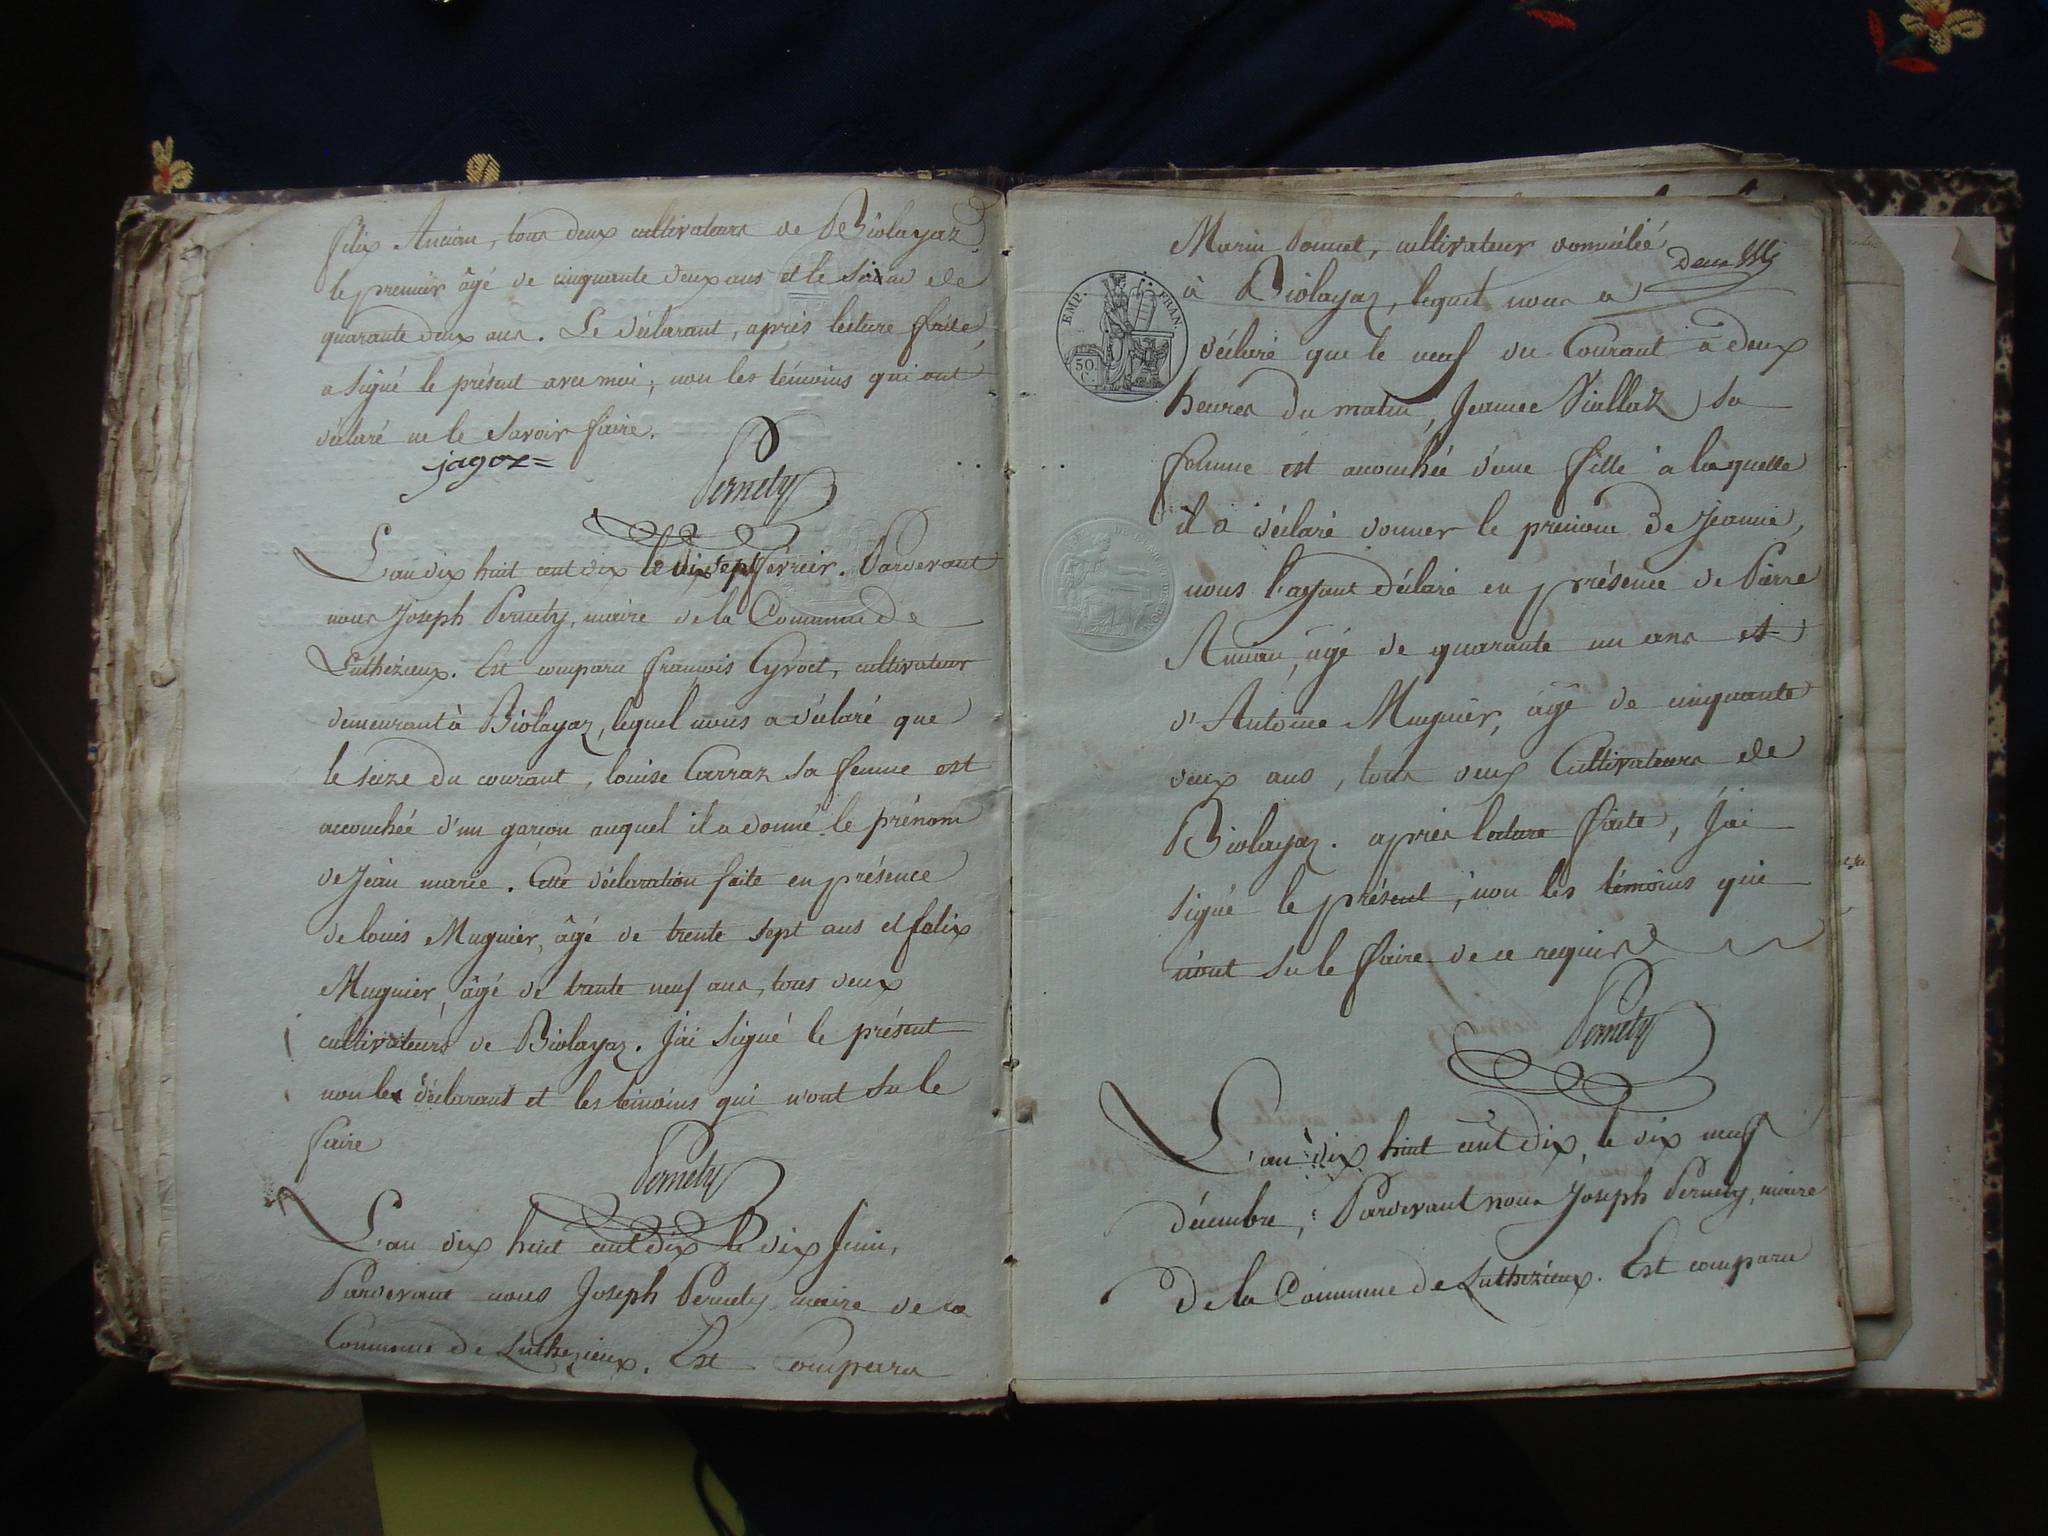 félix Ancian, tous deux cultivateurs de Biolayaz
le premier âgé de cinquante deux ans et le second de
quarante deux ans. Le déclarant, après lecture faite,
a signé le présent avec moi, non les témoins qui ont
déclaré ne le savoir faire.
jagoz=
Pernety
L'an dix huit cent dix le dix sept février. Pardevant
nous Joseph Pernety, maire de la Commune de
Luthézieux. Est comparu françois Cyvoct, cultivateur
demeurant à Biolayaz, lequel nous a déclaré que
le seize du courant, louise Carraz sa femme est
accouchée d'un garçon auquel il a donné le prénom
de Jean marie. Cette déclaration faite en présence
de louis Mugnier, âgé de trente sept ans et félix
Mugnier, âgé de trente neuf ans, tous deux
cultivateurs de Biolayaz. J'ai signé le présent
non le déclarant et les témoins qui n'ont su le
faire
Pernety
L'an dix huit cent dix le dix Juin,
Pardevant nous Joseph Pernety maire de la
Commune de Luthézieux. Est comparu
Marin Ponnet, cultivateur domicilié
à Biolayaz, lequel nous a
EMP. FRAN.
50 C.
déclaré que le neuf du Courant à deux
heures du matin, Jeanne Viallaz sa
femme est accouchée d'une fille à laquelle
il a déclaré donner le prénom de Jeanne,
nous l'ayant déclaré en présence de Pierre
Ancian, âgé de quarante un ans et
d'Antoine Mugnier, âgé de cinquante
deux ans, tous deux Cultivateurs de
Biolayaz. après lecture faite, j'ai
signé le présent, non les témoins qui
n'ont su le faire de ce requis
Pernety
L'an dix huit cent dix, le dix neuf
décembre, Pardevant nous Joseph Pernety, maire
de la Commune de Luthézieux. Est comparu